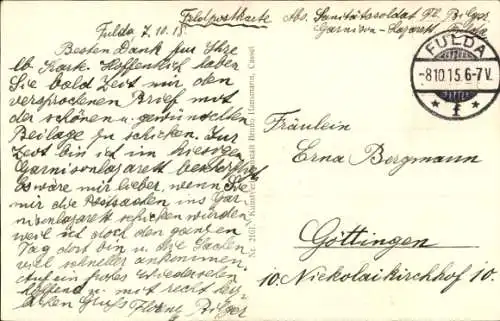 Feldpostkarte Abs. Sanitätssoldat Fl. Bilger
Garnison-Lazarett Fulda
Fulda 7.10.15.
Besten Dank für Ihre
lb. Karte. Hoffentlich haben
Sie bald Zeit mir den
versprochenen Brief mit
der schönen u. gewünschten
Beilage zu schicken. Zur
Zeit bin ich im hiesigen
Garnisonlazarett
Es wäre mir lieber, wenn Sie
mir die Postsachen ins Gar-
nisonlazarett schicken würden
weil ich dort den ganzen
Tag dort bin u. die Sachen
viel schneller ankommen.
Auf ein frohes Wiedersehen
hoffend u. mit recht herz-
lichen Gruß Florenz Bilger
FULDA
-8.10.15.6-7V.
* f *
Fräulein
Erna Bergmann
Göttingen
10. Nickolaikirchhof 10.
Bruno Hansmann, Cassel